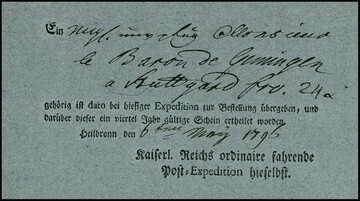 Ein
le Baron de Gemingen
a Stuttgard fro. 24 x
gehörig ist dato bei hiesiger Expedition zur Bestellung übergeben, und
darüber dieser ein viertel Jahr gültige Schein ertheilet worden.
Heilbronn den 6 ten May 1796
Kaiserl. Reichs ordinaire fahrende
Post-Expedition hieselbst.